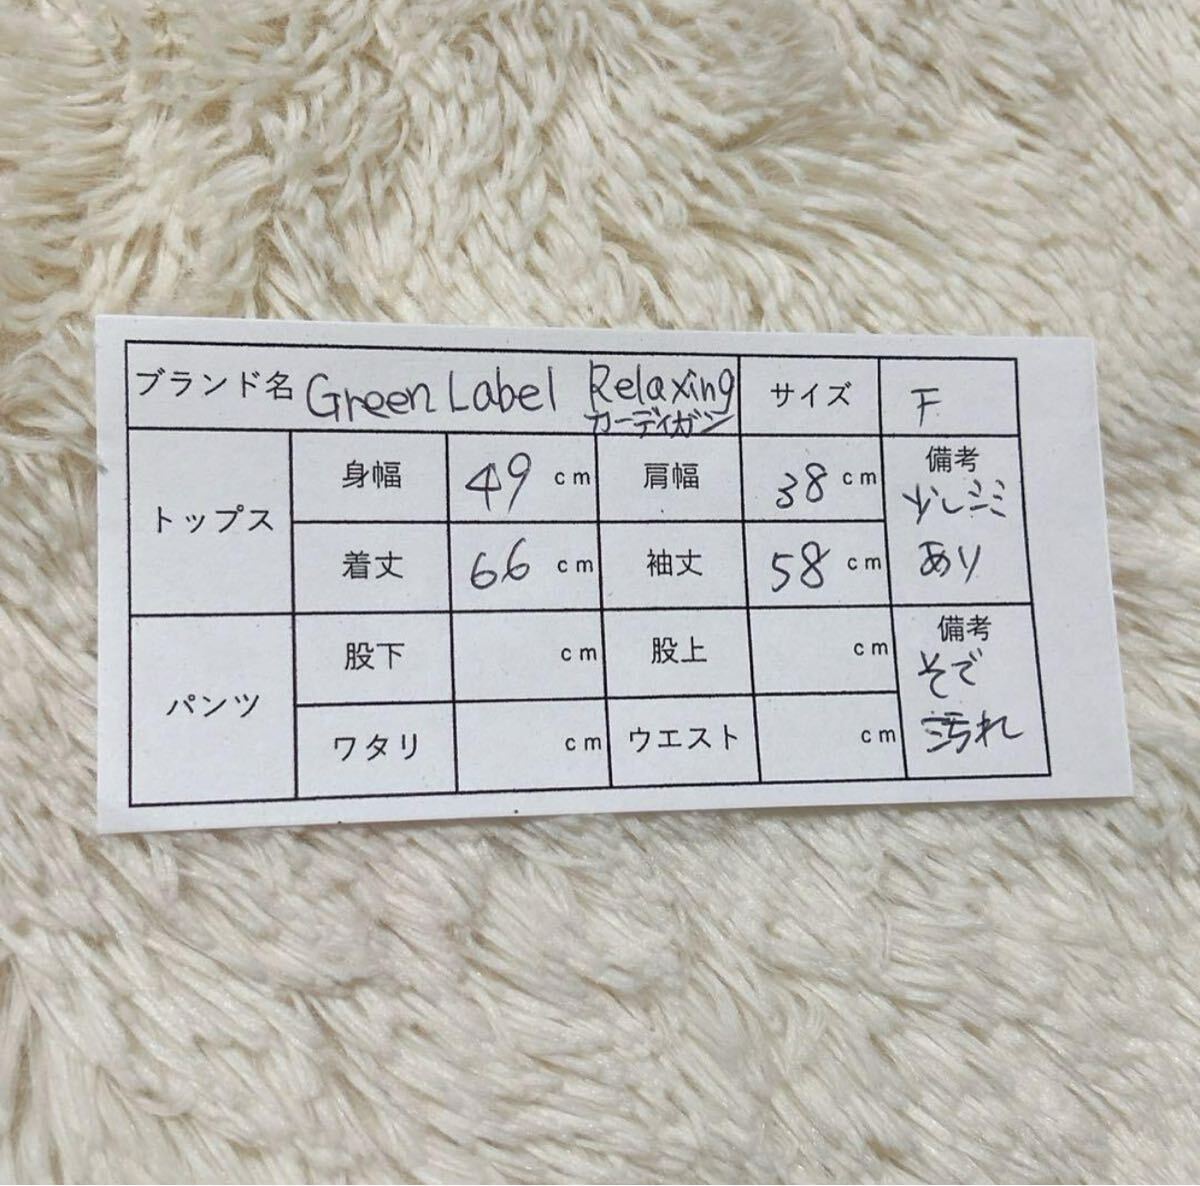 ブランド名 Green Label Relaxing サイズ F
カーディガン
トップス 身幅 49 cm 肩幅 38 cm 備考
少しシミ
着丈 66 cm 袖丈 58 cm あり
パンツ 股下 cm 股上 cm 備考
そで
ワタリ cm ウエスト cm 汚れ